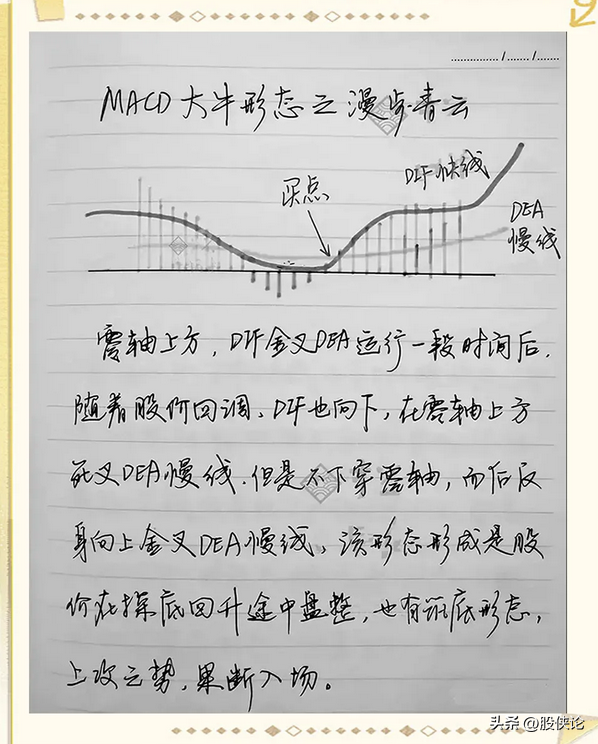 MACD大牛形态之漫步青云
买点
DIF快线
DEA
慢线
零轴上方，DIF金叉DEA运行一段时间后，
随着股价回调，DIF也向下，在零轴上方
死叉DEA慢线，但是不下穿零轴，而后反
身向上金叉DEA慢线，该形态形成是股
价在探底回升途中盘整，也有筑底形态，
上攻之势，果断入场。
头条 @股侠论